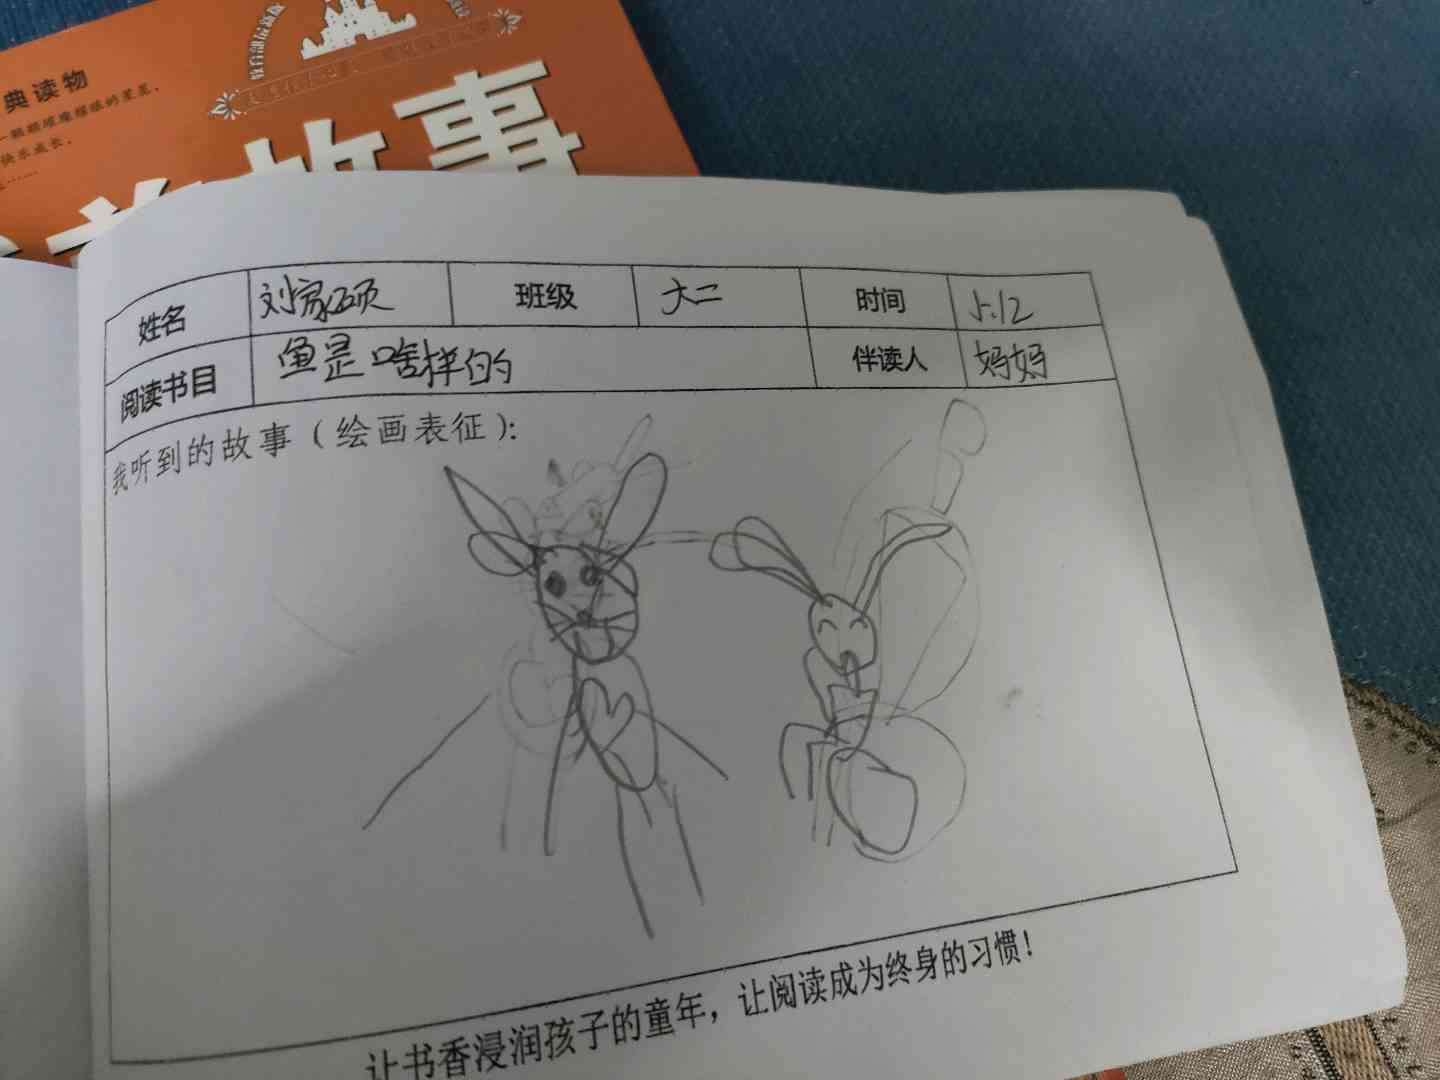 典读物
一颗颗璀璨耀眼的星星，
快乐成长。
故事
姓名 刘家硕 班级 大二 时间 5.12
阅读书目 鱼是啥样的 伴读人 妈妈
我听到的故事（绘画表征）：
让书香浸润孩子的童年，让阅读成为终身的习惯！